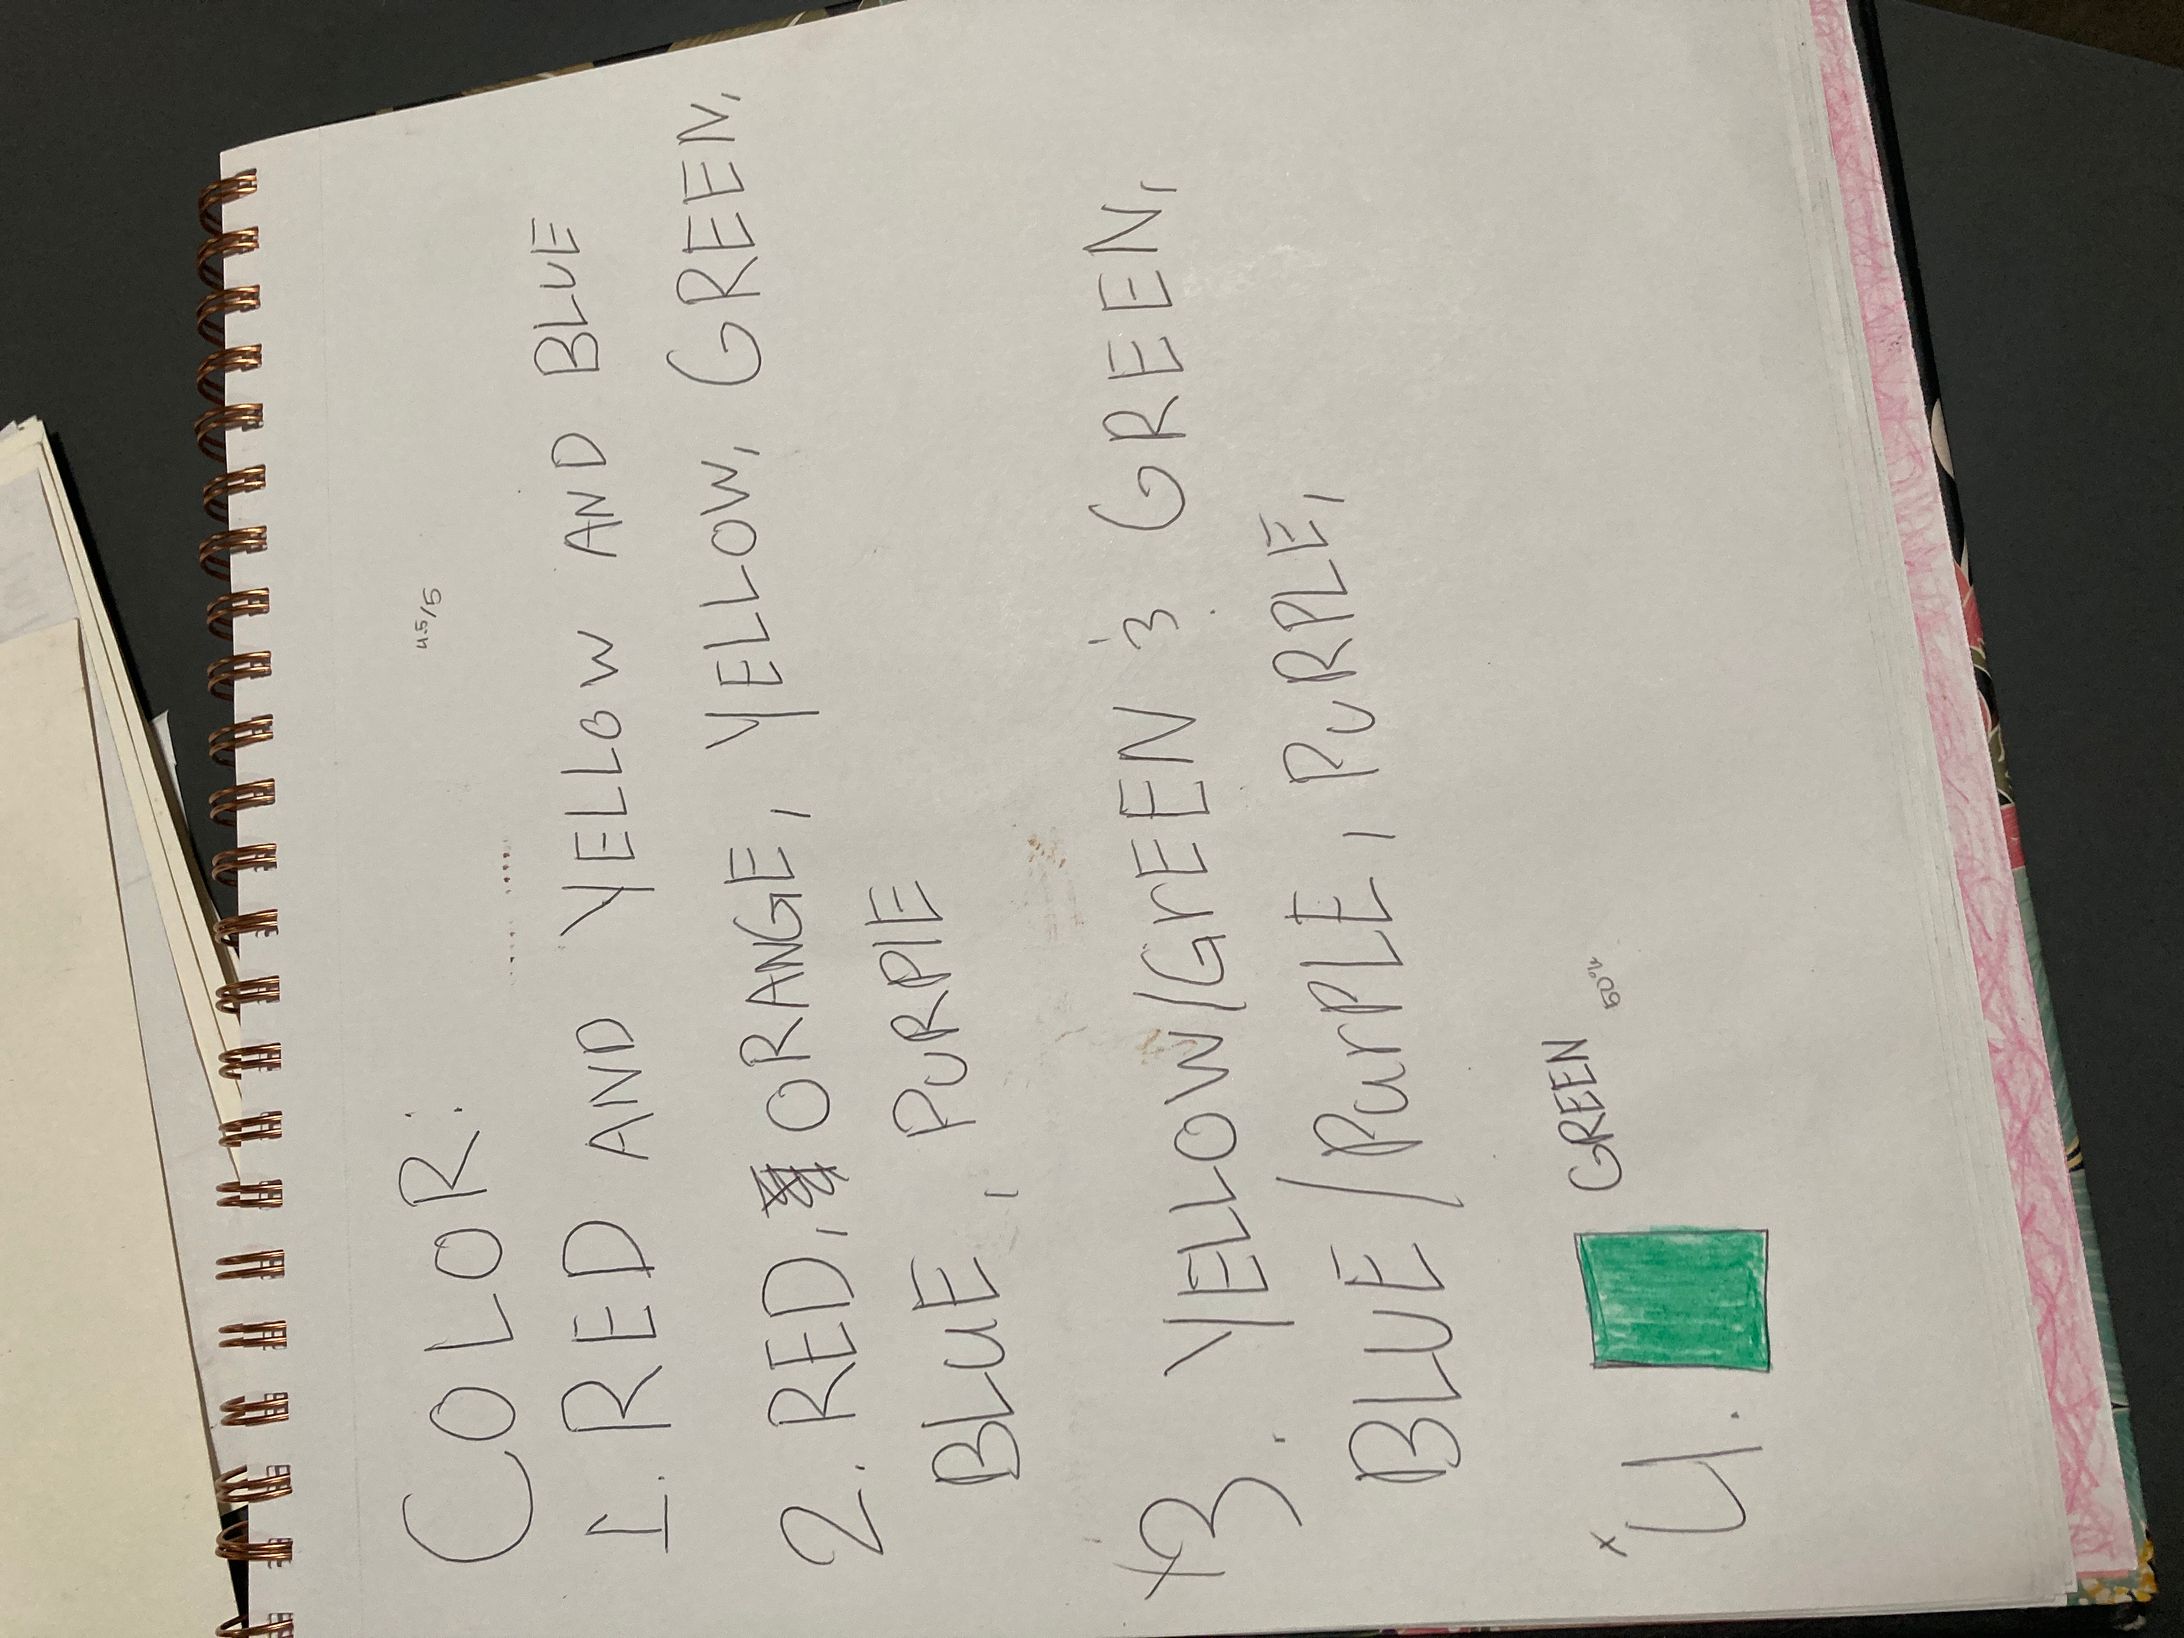 COLOR:
4.5/5
1. RED AND YELLOW AND BLUE
2. RED, ORANGE, YELLOW, GREEN,
BLUE, PURPLE
x3. YELLOW/GrEEN & GREEN,
BLUE/PurPLE, PURPLE,
x4. GREEN
50%